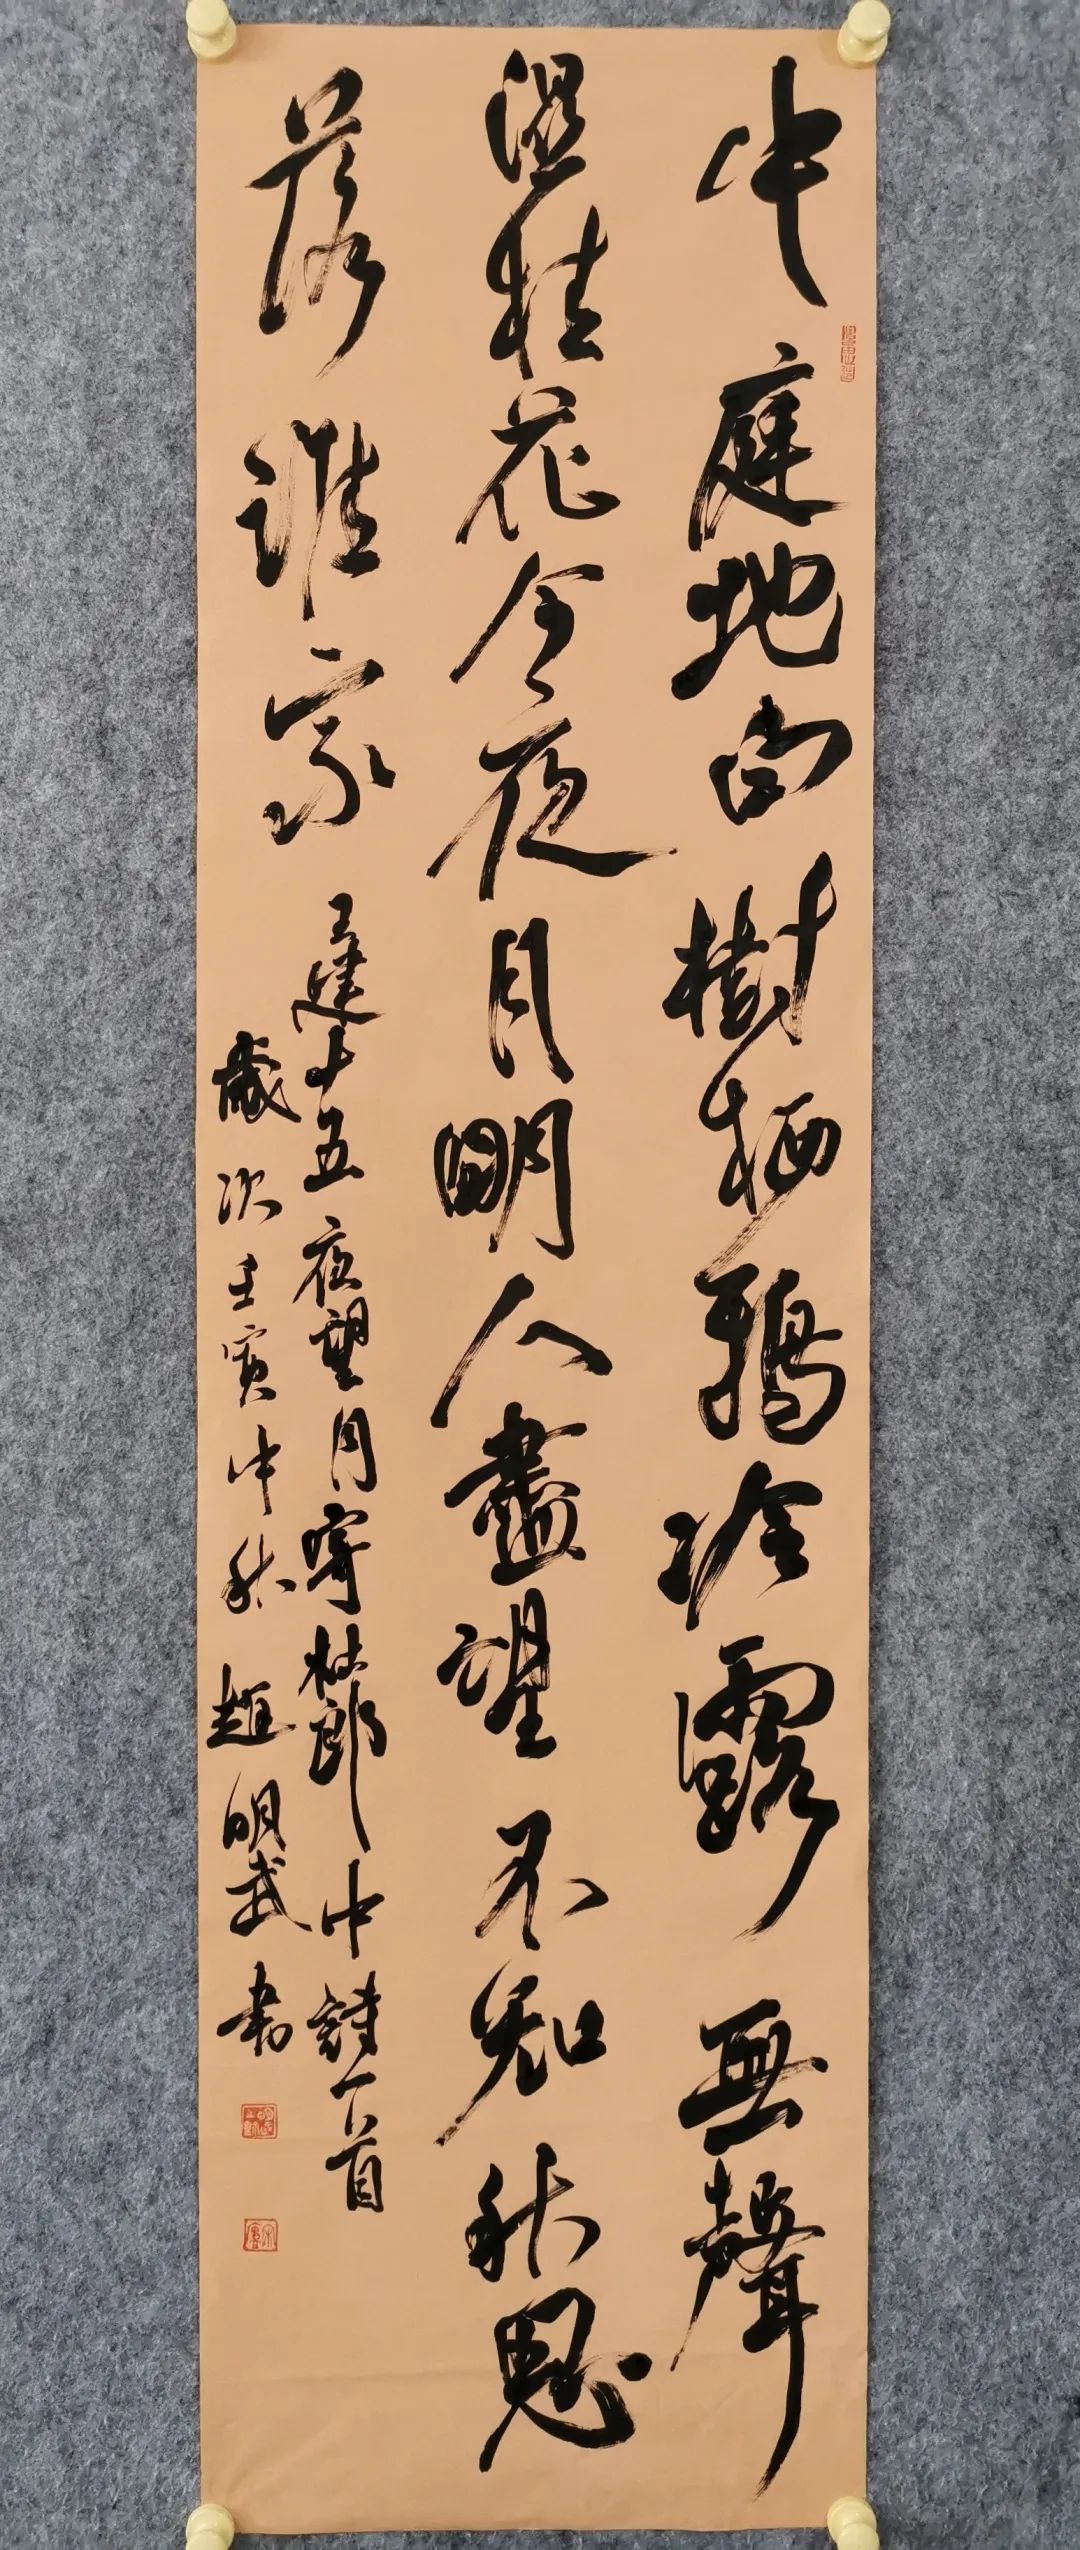 中庭地白樹栖鴉冷露無聲
濕桂花今夜月明人盡望不知秋思
落誰家
王建十五夜望月寄杜郎中詩一首
歲次壬寅中秋趙明武書